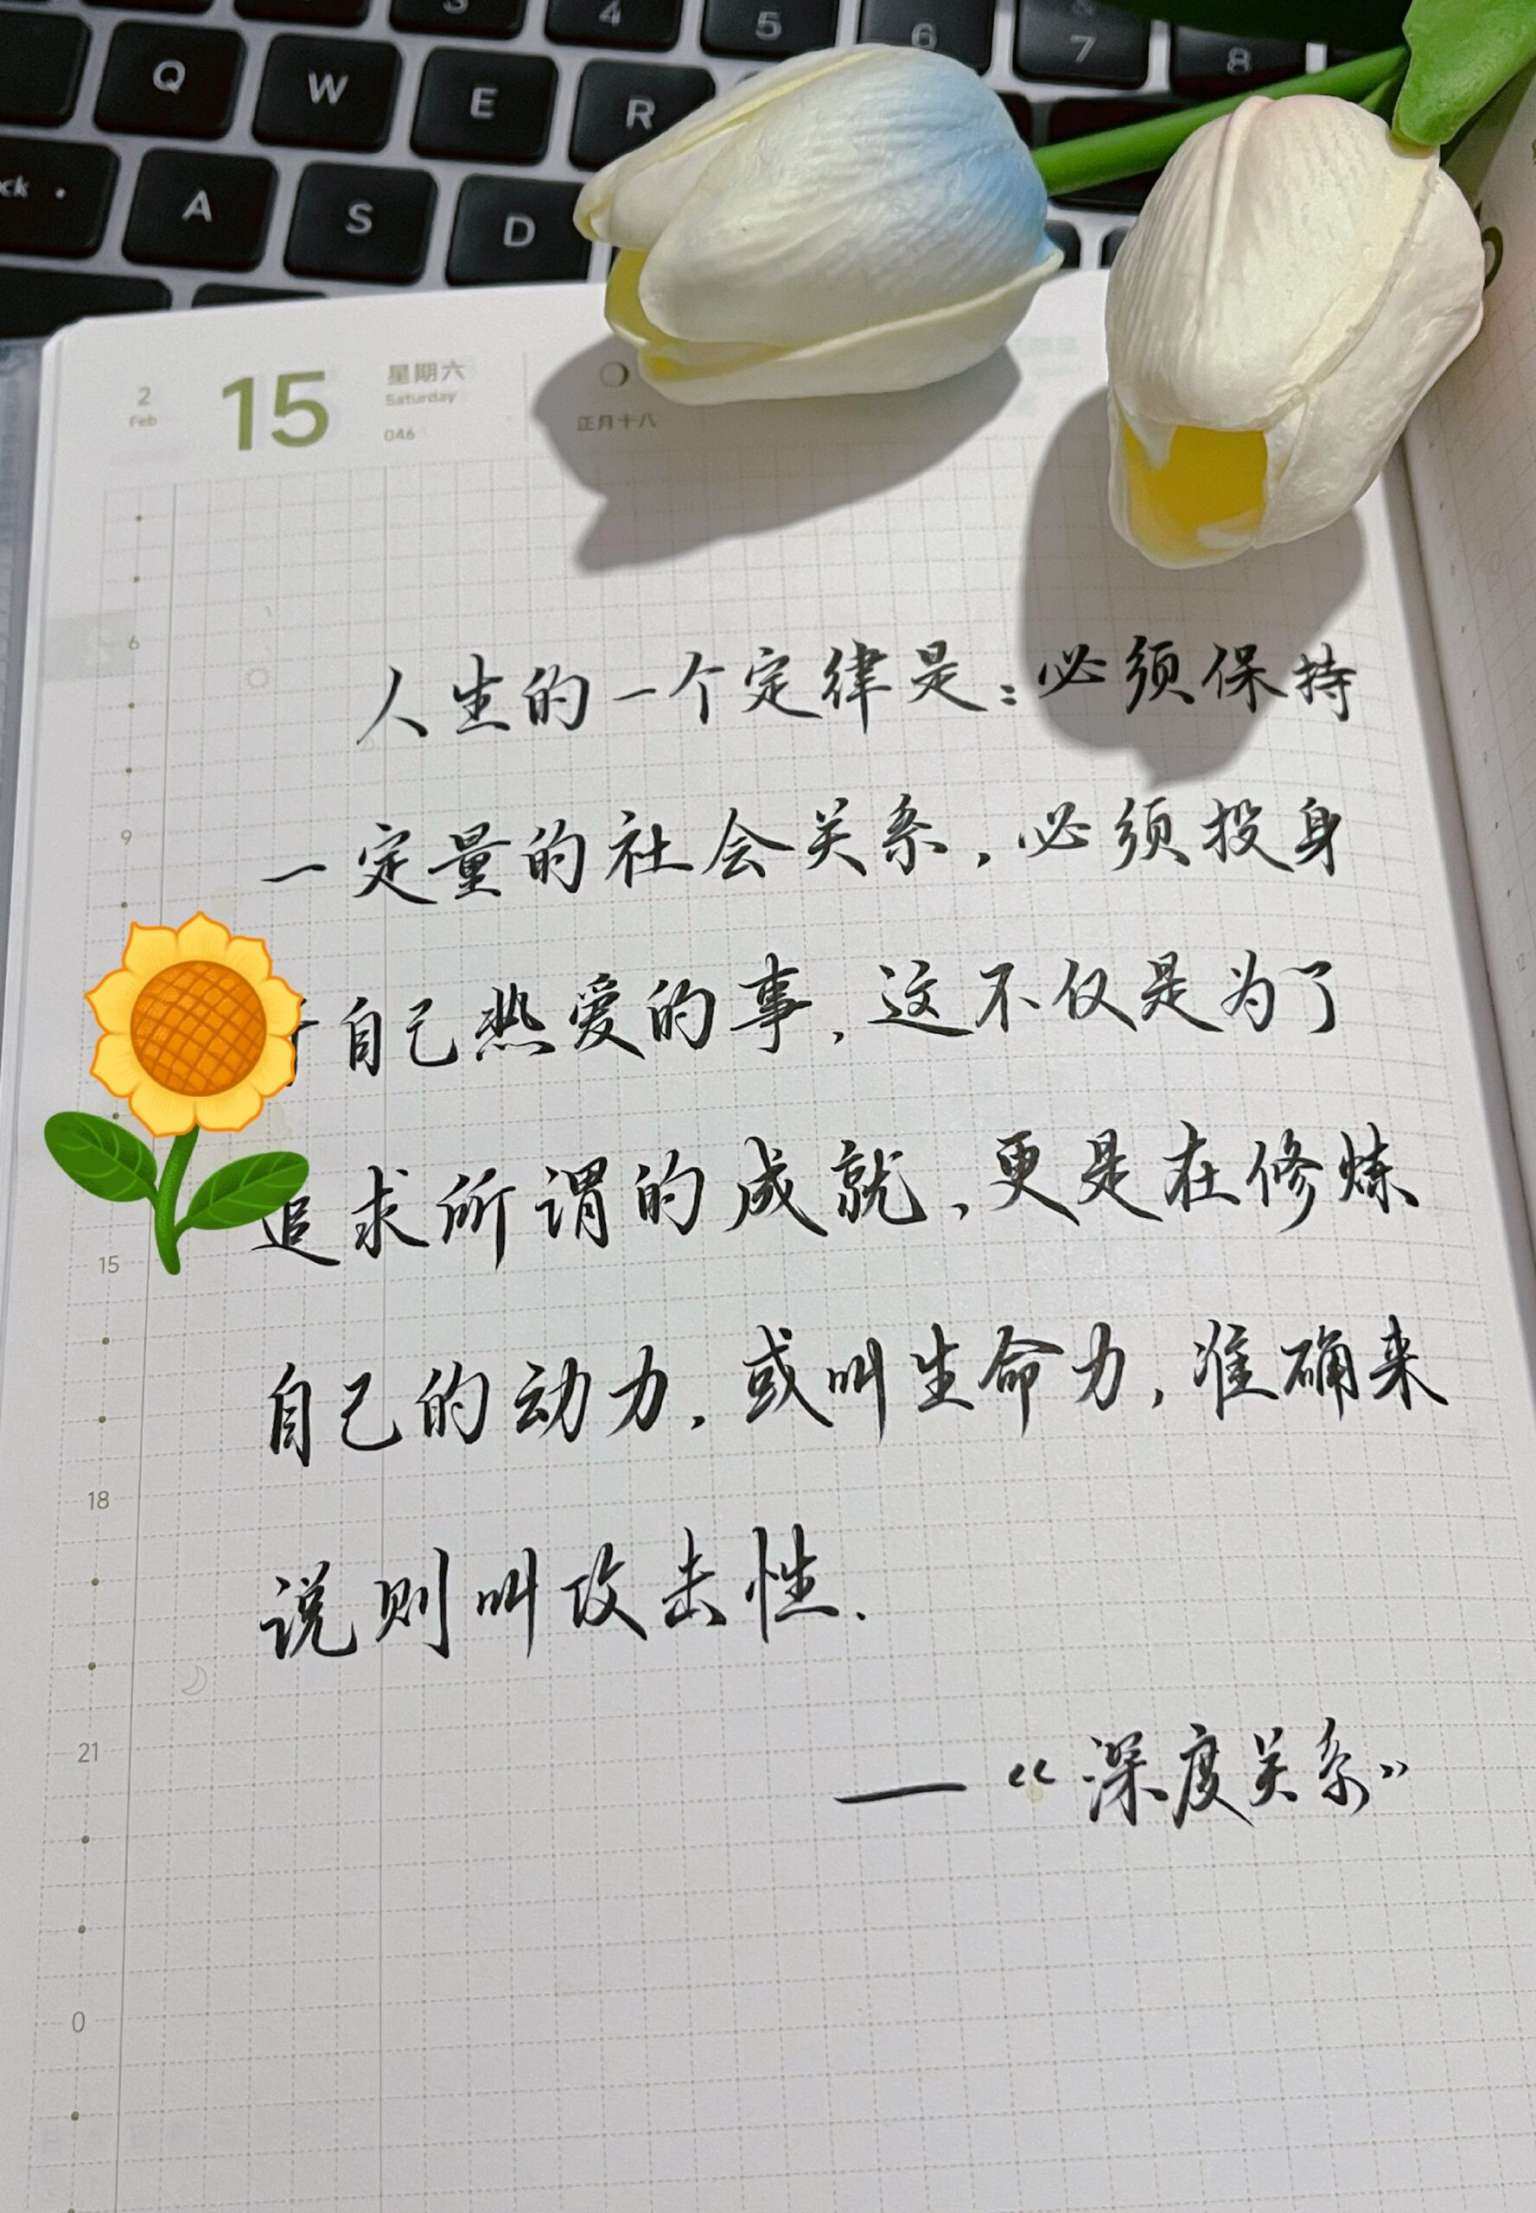 3
4
5
6
7
8
Q
W
E
R
ck
A
S
D
2
Feb
15
星期六
Saturday
046
正月十八
人生的一个定律是:必须保持
一定量的社会关系,必须投身
自己热爱的事,这不仅是为了
追求所谓的成就,更是在修炼
自己的动力,或叫生命力,准确来
说则叫攻击性.
——《深度关系》
6
9
15
18
21
0